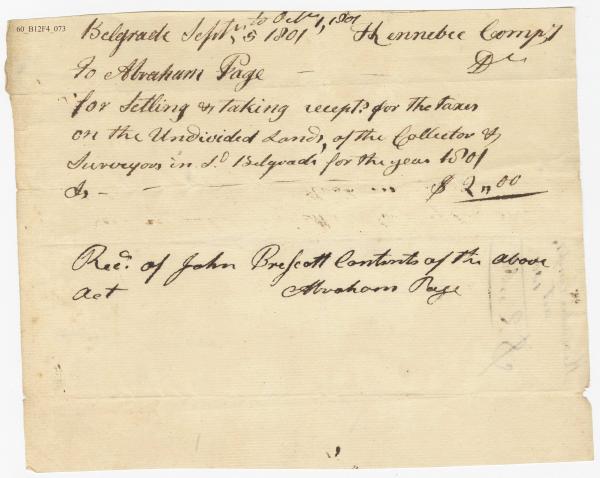 60_B12F4_073
to Octbr 1, 1801
Belgrade Septr 5 1801 Kennebec Compy
To Abraham Page Dr
for Setling & taking recepts for the taxes
on the Undivided Lands, of the Collector &
Surveyors in sd Belgrade for the year 1801
is - $ 2,,00
Recd. of John Prescott Contents of the above
act Abraham Page